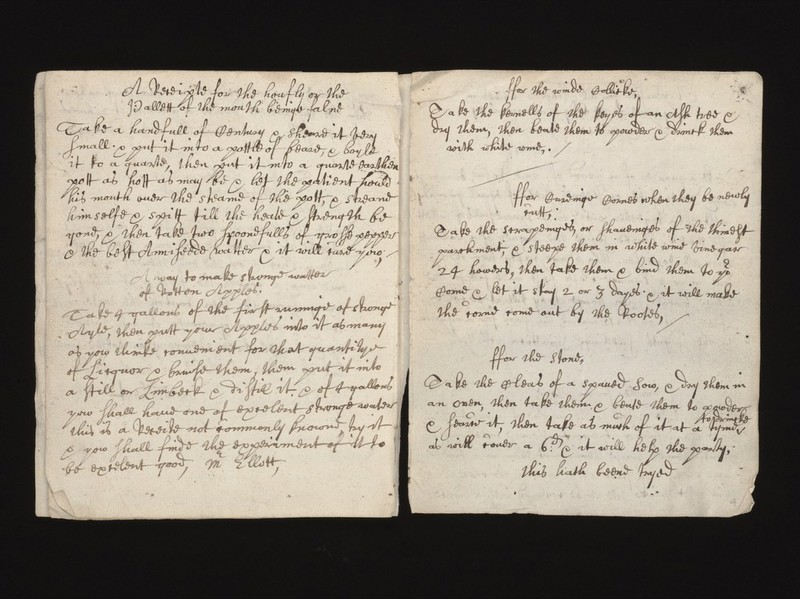 A Receipte for the houfly or the
Pallett of the mouth beinge falne
Take a handfull of Century & sheare it very
small & put it into a pottle of beare, & boyle
it to a quarte, then put it into a quarte earthen
pott as hott as may be & let the patient hould
his mouth over the steame of the pott, & streane
himselfe & spitt till the heate & strength be
gone, & then take two spoonefulls of grosse pepper
& the best Anniseede watter & it will cure you,
A way to make stronge watter
of Rotton Apples.
Take 4 gallons of the first runninge of stronge
Ayle, then putt your Apples into it as many
as you thinke convenient for that quantitye
of Licquor & bruise them, then put it into
a still or Limbeck & distill it, & of 4 gallons
you shall have one of excelent stronge watter
this is a Receite not commonly knowne try it
& you shall finde the experiment of it to
be excelent good, Mr Ellott,
ffor the winde Collicke,
Take the kernells of the keyes of an Ash tree &
dry them, then beate them to powder & drinck them
with white wine,.
ffor Cureinge Cornes when they be newly
cutt,:
Take the scrapeinges, or shaveinges of the thinest
parchment, & steepe them in white wine vinegar
24 howers, then take them & bind them to yr
Corne & let it stay 2 or 3 dayes & it will make
the corne come out by the Rootes,
ffor the Stone,
Take the of a spaved Sow, & dry them in
an oven, then take them & beate them to powder
& searce it, then take as much of it at a tyme
to drincke
as will cover a 6d & it will help the party,
this hath beene tryed